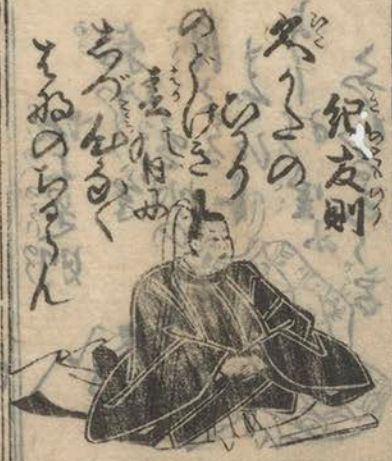 紀友則
久かたの
ひかり
のどけき
春の日に
しづ心なく
はなのちるらん